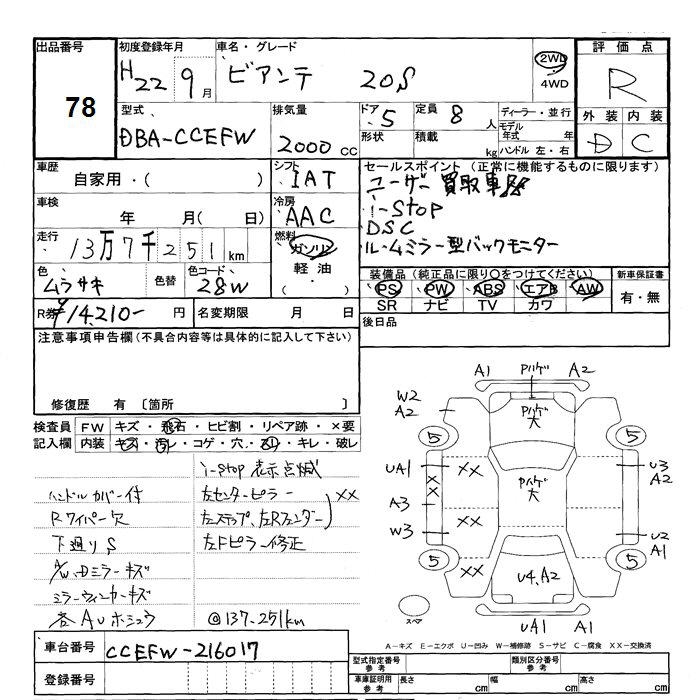 出品番号
78
初度登録年月
H22 9月
車名・グレード
ビアンテ 20S
2WD
4WD
評価点
R
型式
DBA-CCEFW
排気量
2000 CC
ドア 5
形状
定員 8 人
積載 kg
ディーラー・並行
モデル年式 年
ハンドル 左・右
外装 内装
D C
車歴
自家用・( )
シフト
IAT
セールスポイント (正常に機能するものに限ります)
ユーザー買取車
i-stop
DSC
ルームミラー型バックモニター
車検
年 月( 日)
冷房
AAC
走行
13万7千251km
燃料
ガソリン
軽油
・( )
色
ムラサキ
色替
色コード
28W
装備品 (純正品に限り○をつけてください)
PS PW ABS エアB AW
SR ナビ TV カワ
新車保証書
有・無
R券
¥14,210- 円
名変期限 月 日
後日品
注意事項申告欄(不具合内容等は具体的に記入して下さい)
修復歴 有 〔箇所 〕
検査員
記入欄
FW キズ・飛石・ヒビ割・リペア跡・×要
内装 キズ・汚レ・コゲ・穴・スリ・キレ・破レ
i-stop 表示点滅
ハンドルカバー付
左センターピラー ××
Rワイパー欠
左ステップ、左Rフェンダー
下廻りS
左Fピラー修正
A/W、Dミラーキズ
ミラーウィンカーキズ
各AUホシュウ
@137,251km
A1 Pハゲ A2
W2
A2
Pハゲ
大
5 5
UA1 ×× U3
A2
××
Pハゲ
大
A3
W3 ×× U2
A1
5 ×× 5
U4、A2
スペア
UA1 A1
A-キズ E-エクボ U-凹み W-補修跡 S-サビ C-腐食 XX-交換済
車台番号
CCEFW-216017
登録番号
型式指定番号
参考
類別区分番号
参考
車庫証明用
参考
長さ cm 幅 cm 高さ cm